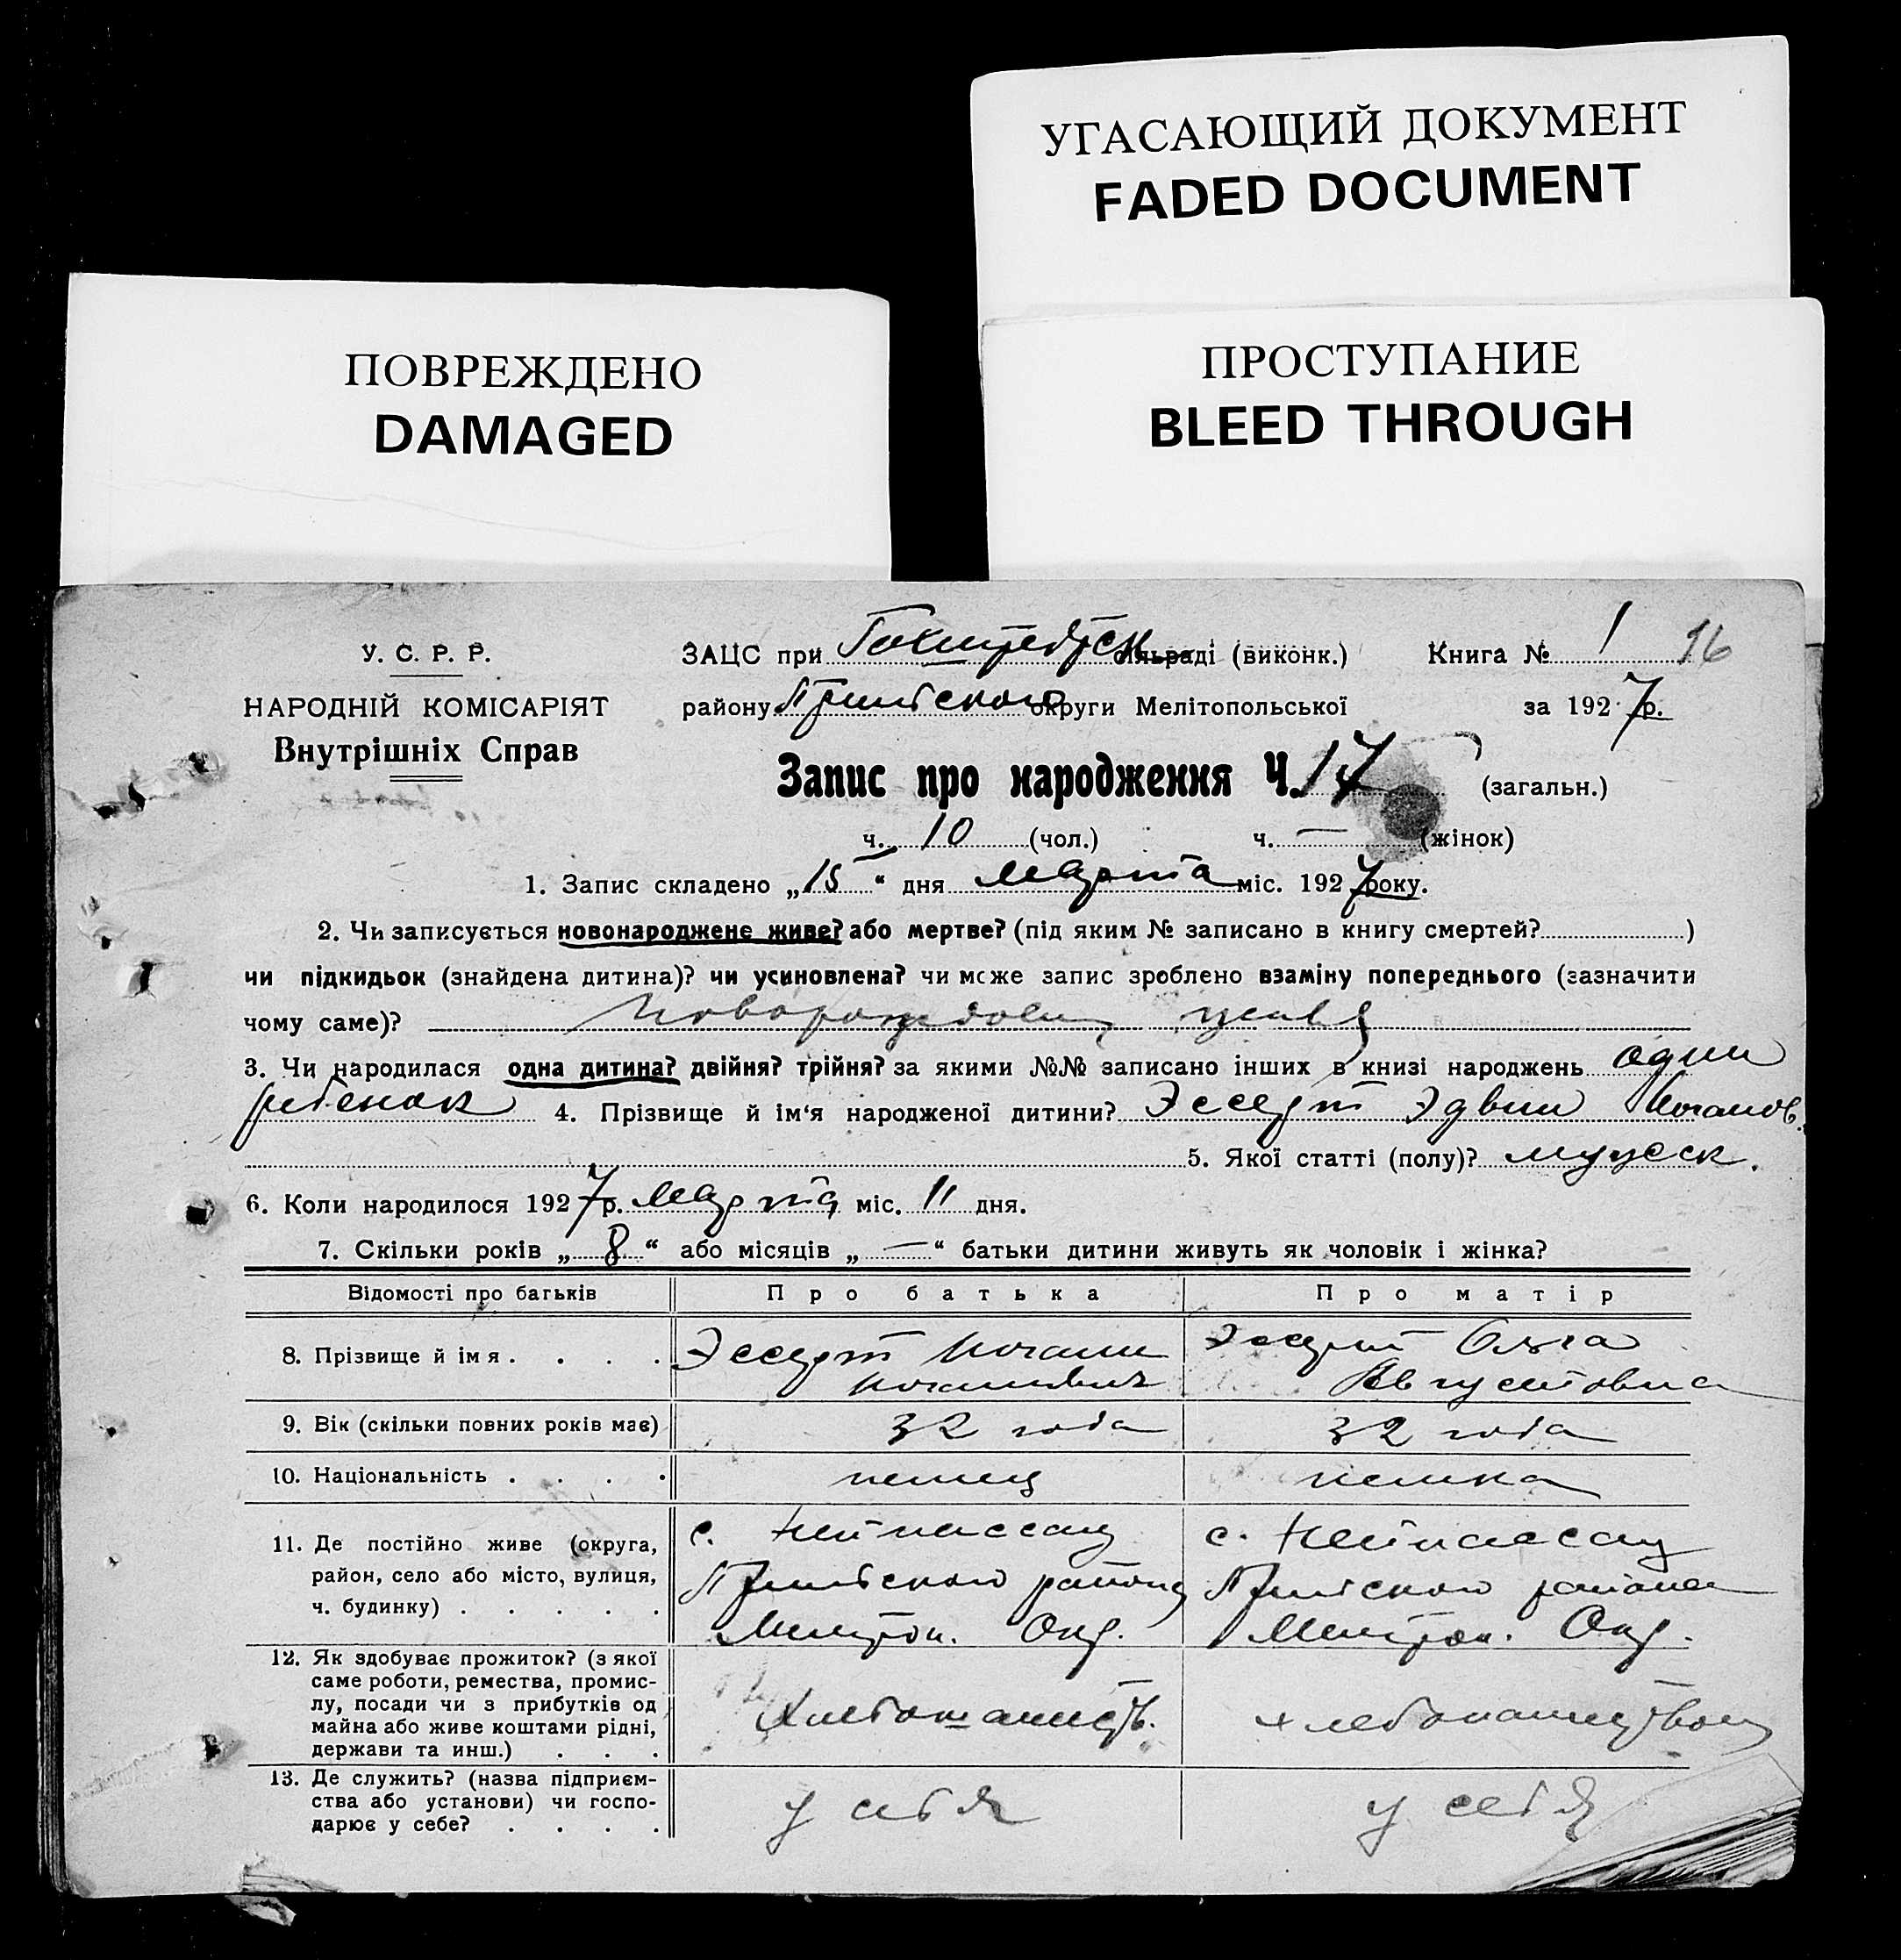 УГАСАЮЩИЙ ДОКУМЕНТ
FADED DOCUMENT
ПОВРЕЖДЕНО
DAMAGED
ПРОСТУПАНИЕ
BLEED THROUGH
У. С. Р. Р.
НАРОДНІЙ КОМІСАРІЯТ
Внутрішніх Справ
ЗАЦС при Гохштедтск сільраді (виконк.) Книга № 1 16
району Пришибского округи Мелітопольської за 1927 р.
Запис про народження Ч. 17 (загальн.)
ч. 10 (чол.) ч. — (жінок)
1. Запис складено „15“ дня Марта міс. 1927 року.
2. Чи записується новонароджене живе? або мертве? (під яким № записано в книгу смертей? )
чи підкидьок (знайдена дитина)? чи усиновлена? чи може запис зроблено взаміну попереднього (зазначити
чому саме)?
3. Чи народилася одна дитина? двійня? трійня? за якими №№ записано інших в книзі народжень один
ребенок 4. Прізвище й ім‘я народженої дитини? Эссерт Эдвин Иоганов.
5. Якої статті (полу)? мужск.
6. Коли народилося 1927 р. Марта міс. 11 дня.
7. Скільки років „8“ або місяців „—“ батьки дитини живуть як чоловік і жінка?
Відомості про батьків Про батька Про матір
8. Прізвище й імя . . . . Эссерт Иоганн Эссерт Ольга
Иоганович Августовна
9. Вік (скільки повних років має) 32 года 32 года
10. Національність . . . . немец немка
11. Де постійно живе (округа, с. Нейнассау с. Нейнассау
район, село або місто, вулиця, Пришибского района Пришибского района
ч. будинку) . . . . . Мелитоп. Окр. Мелитоп. Окр.
12. Як здобуває прожиток? (з якої
саме роботи, ремества, промис-
лу, посади чи з прибутків од
майна або живе коштами рідні, Хлебопашеств. хлебопашеством
держави та инш.) . . .
13. Де служить? (назва підприєм-
ства або установи) чи госпо- у себя у себя
дарює у себе? . . . .